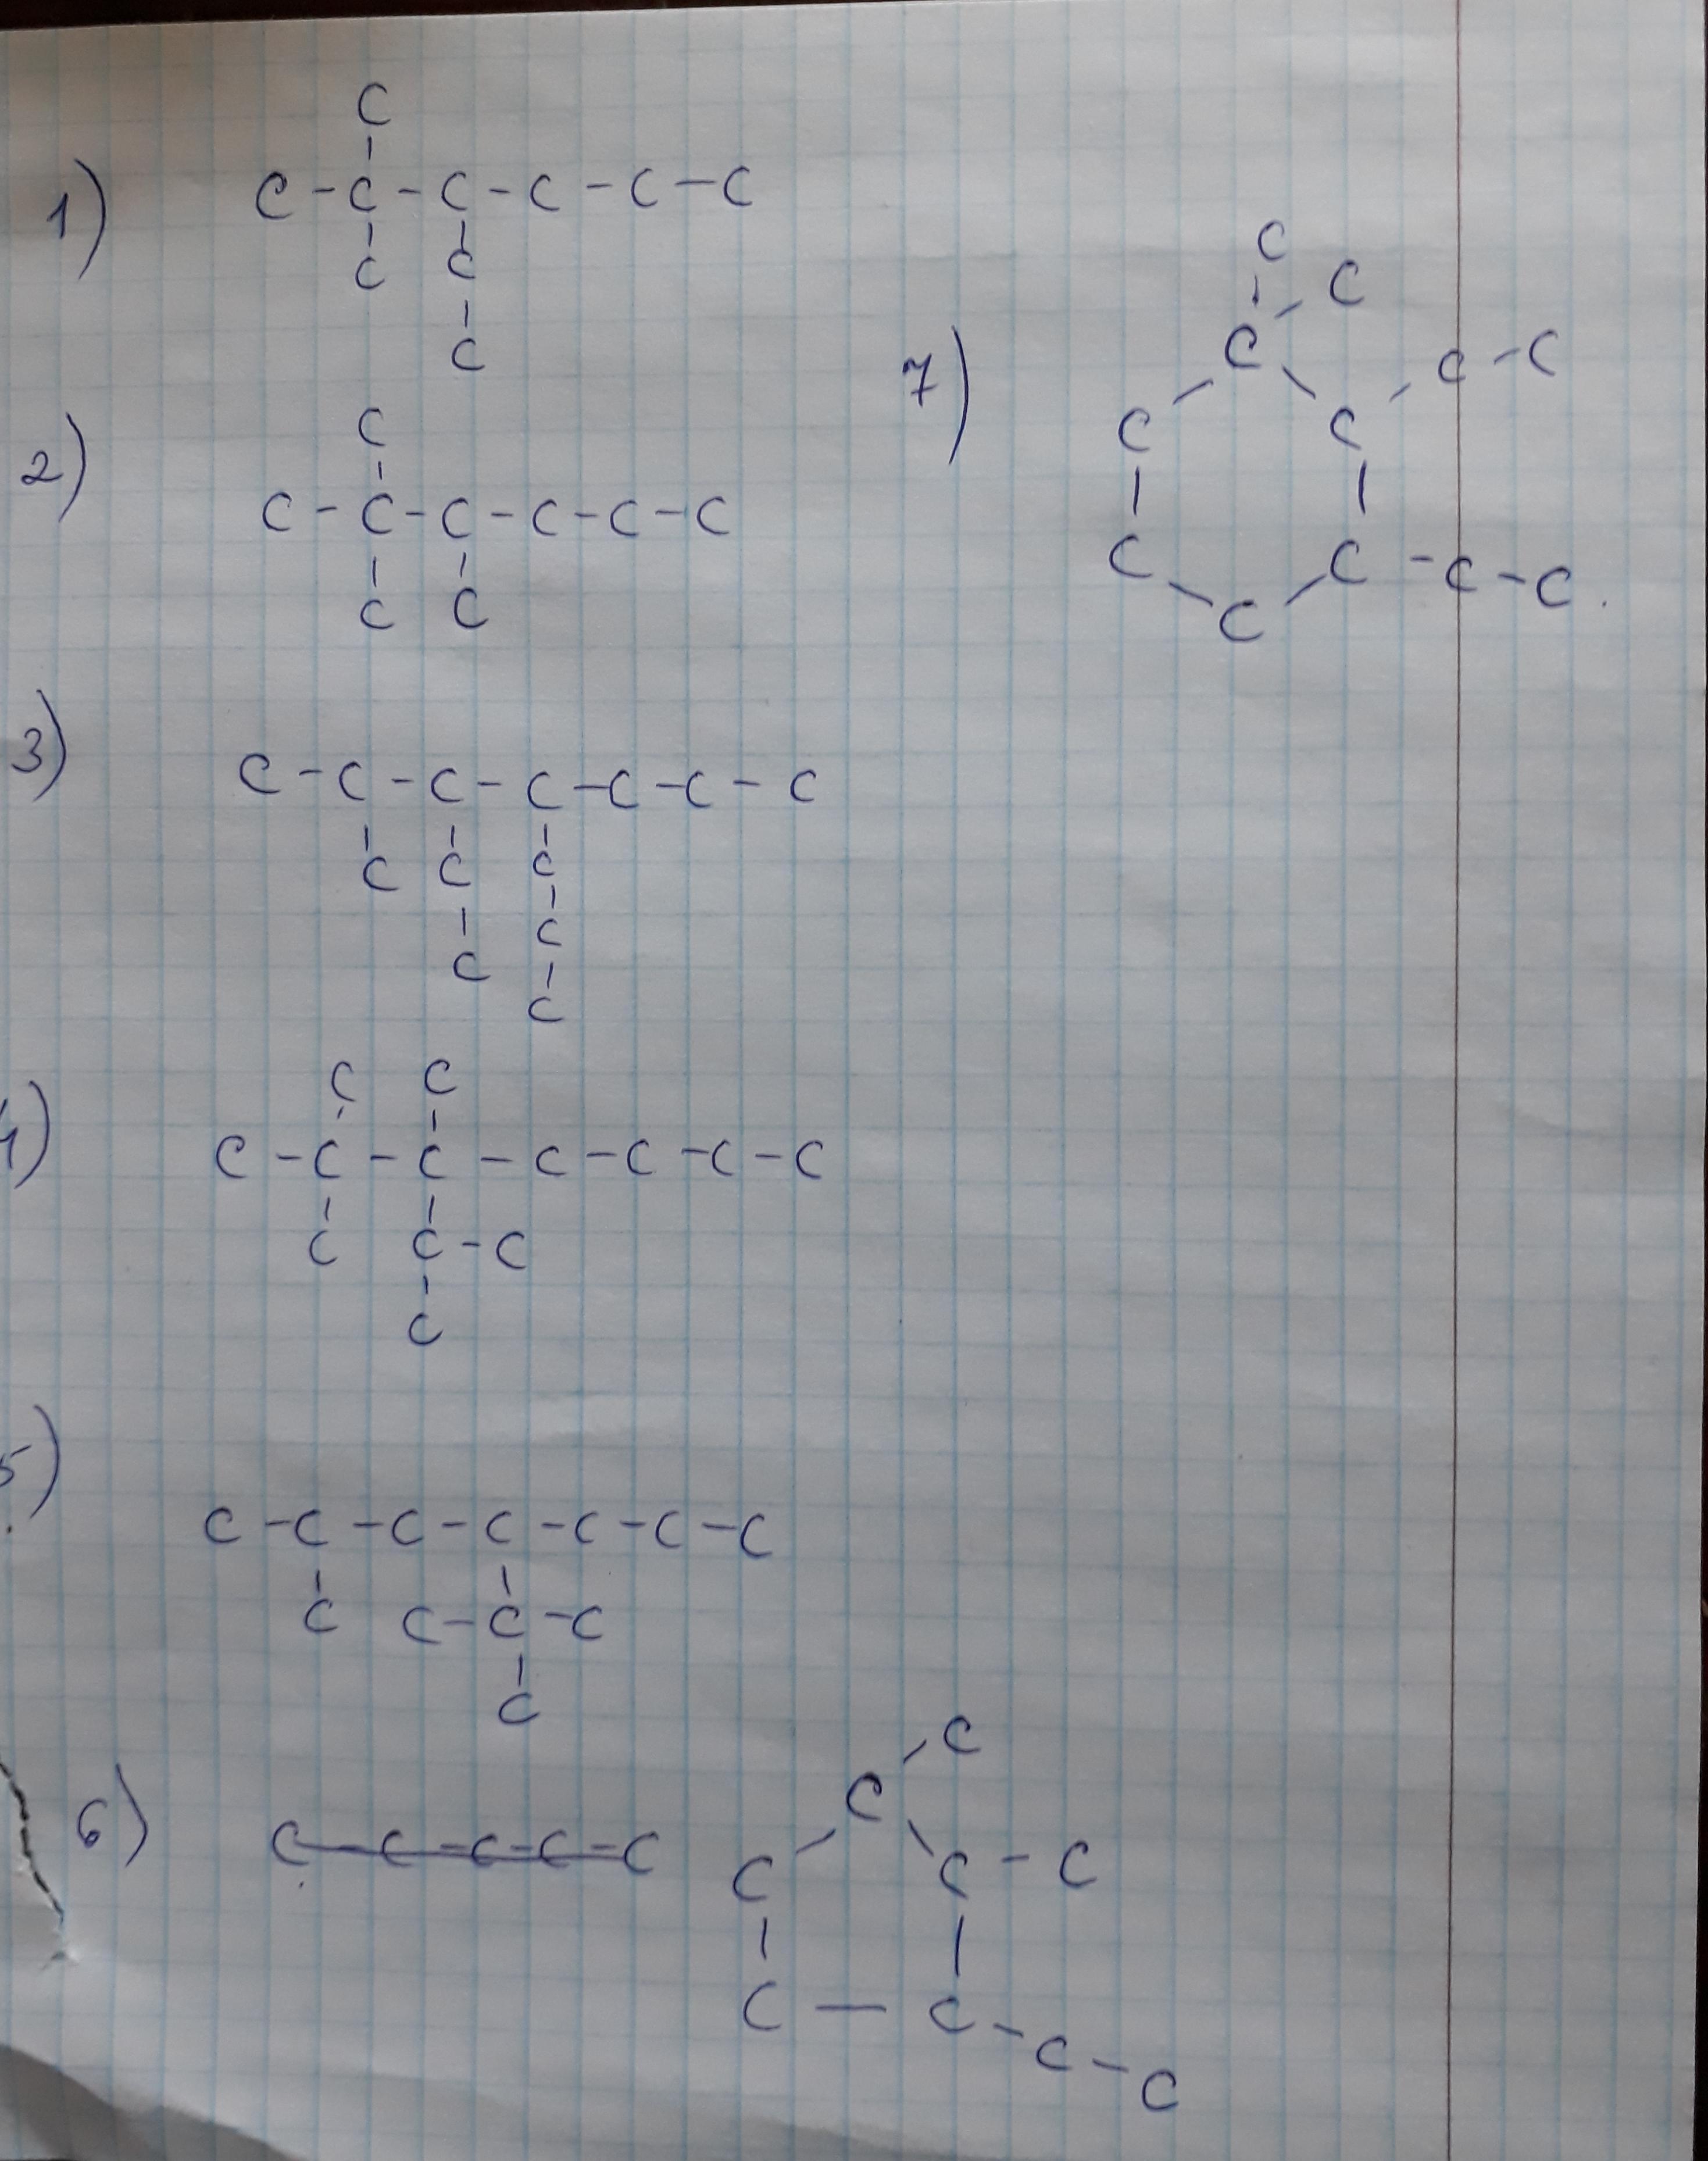 1)
C
C - C - C - C - C - C
C C
C
2)
C
C - C - C - C - C - C
C C
3)
C - C - C - C - C - C - C
C C C
C C
C
4)
C C
C - C - C - C - C - C - C
C C - C
C
5)
C - C - C - C - C - C - C
C C - C - C
C
6)
C - C - C - C - C
C
C
C C - C
C — C - C - C
7)
C
C
C
C - C
C C
C C - C - C.
C